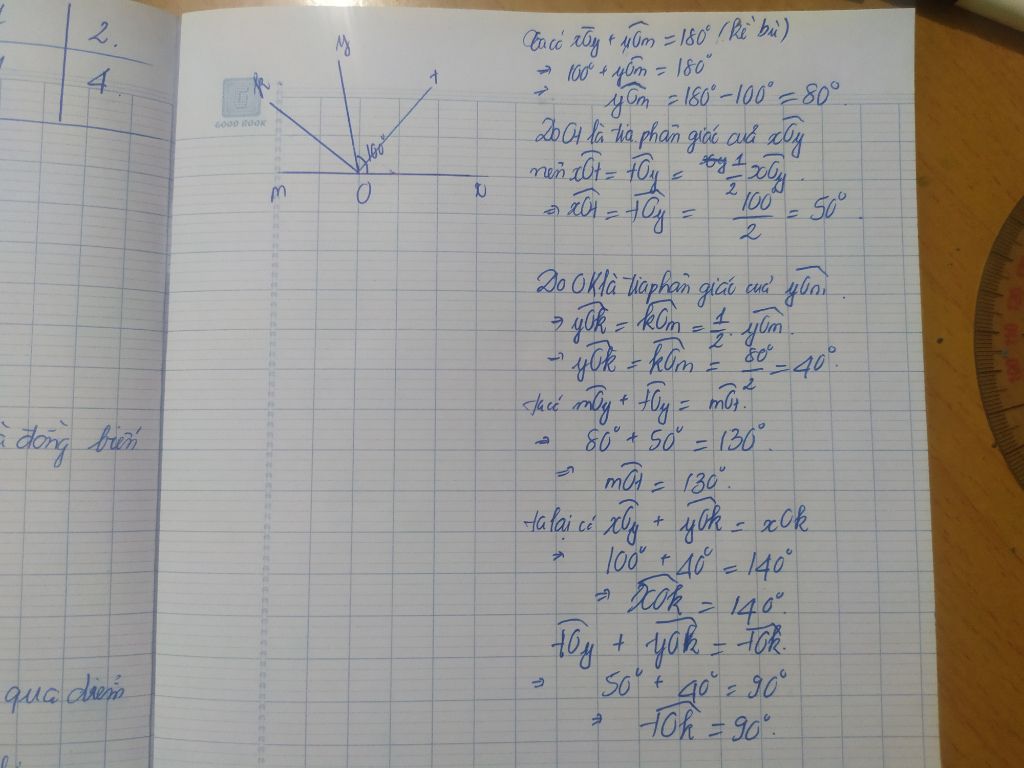 2.
4
à đồng biến
qua điểm
GOOD BOOK
y
k
t
100°
m
O
x
Ta có xOy + yOm = 180° (kề bù)
⇒ 100° + yOm = 180°
⇒ yOm = 180° - 100° = 80°.
Do Ot là tia phân giác của xOy
nên xOt = tOy = 1/2 xOy.
⇒ xOt = tOy = 100/2 = 50°
Do OK là tia phân giác của yOm.
⇒ yOk = kOm = 1/2. yOm.
⇒ yOk = kOm = 80°/2 = 40°.
ta có mOy + tOy = mOt.
⇒ 80° + 50° = 130°.
⇒ mOt = 130°.
ta lại có xOy + yOk = xOk
⇒ 100° + 40° = 140°
⇒ xOk = 140°.
tOy + yOk = tOk.
⇒ 50° + 40° = 90°
⇒ tOk = 90°.